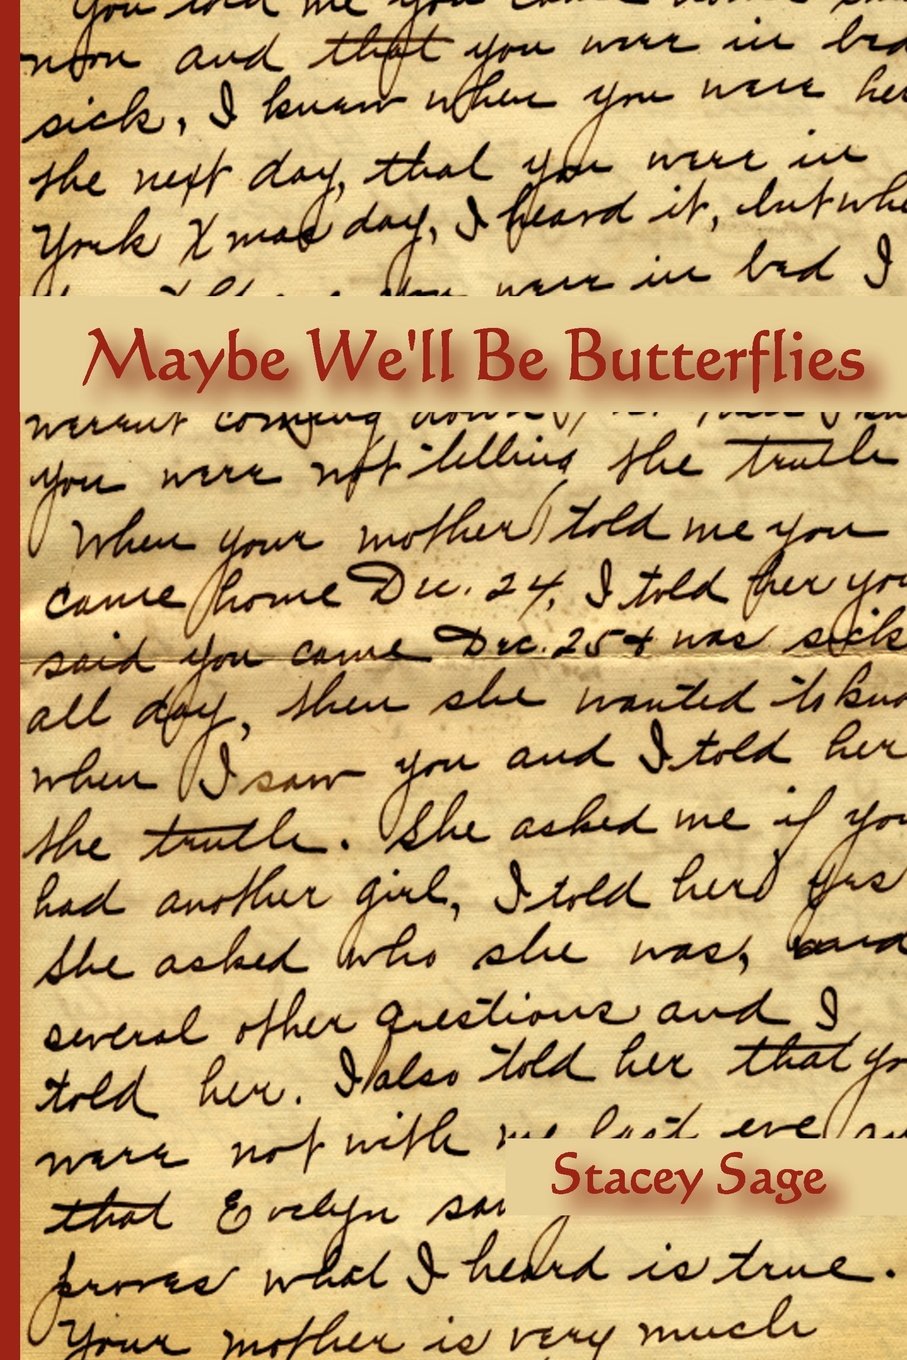 You told me you came home
noon and that you were in bed
sick, I knew when you were her
the next day, that you were in
York Xmas day, I heard it, but whe
you were in bed I
Maybe We'll Be Butterflies
werent coming down
you were not telling the truth
When your mother told me you
came home Dec. 24, I told her you
said you came Dec. 25 & was sick
all day, then she wanted to know
when I saw you and I told her
the truth. She asked me if you
had another girl, I told her yes
She asked who she was, and
several other questions and I
told her. I also told her that yo
were not with me last eve an
that Evelyn saw
Stacey Sage
proves what I heard is true.
Your mother is very much